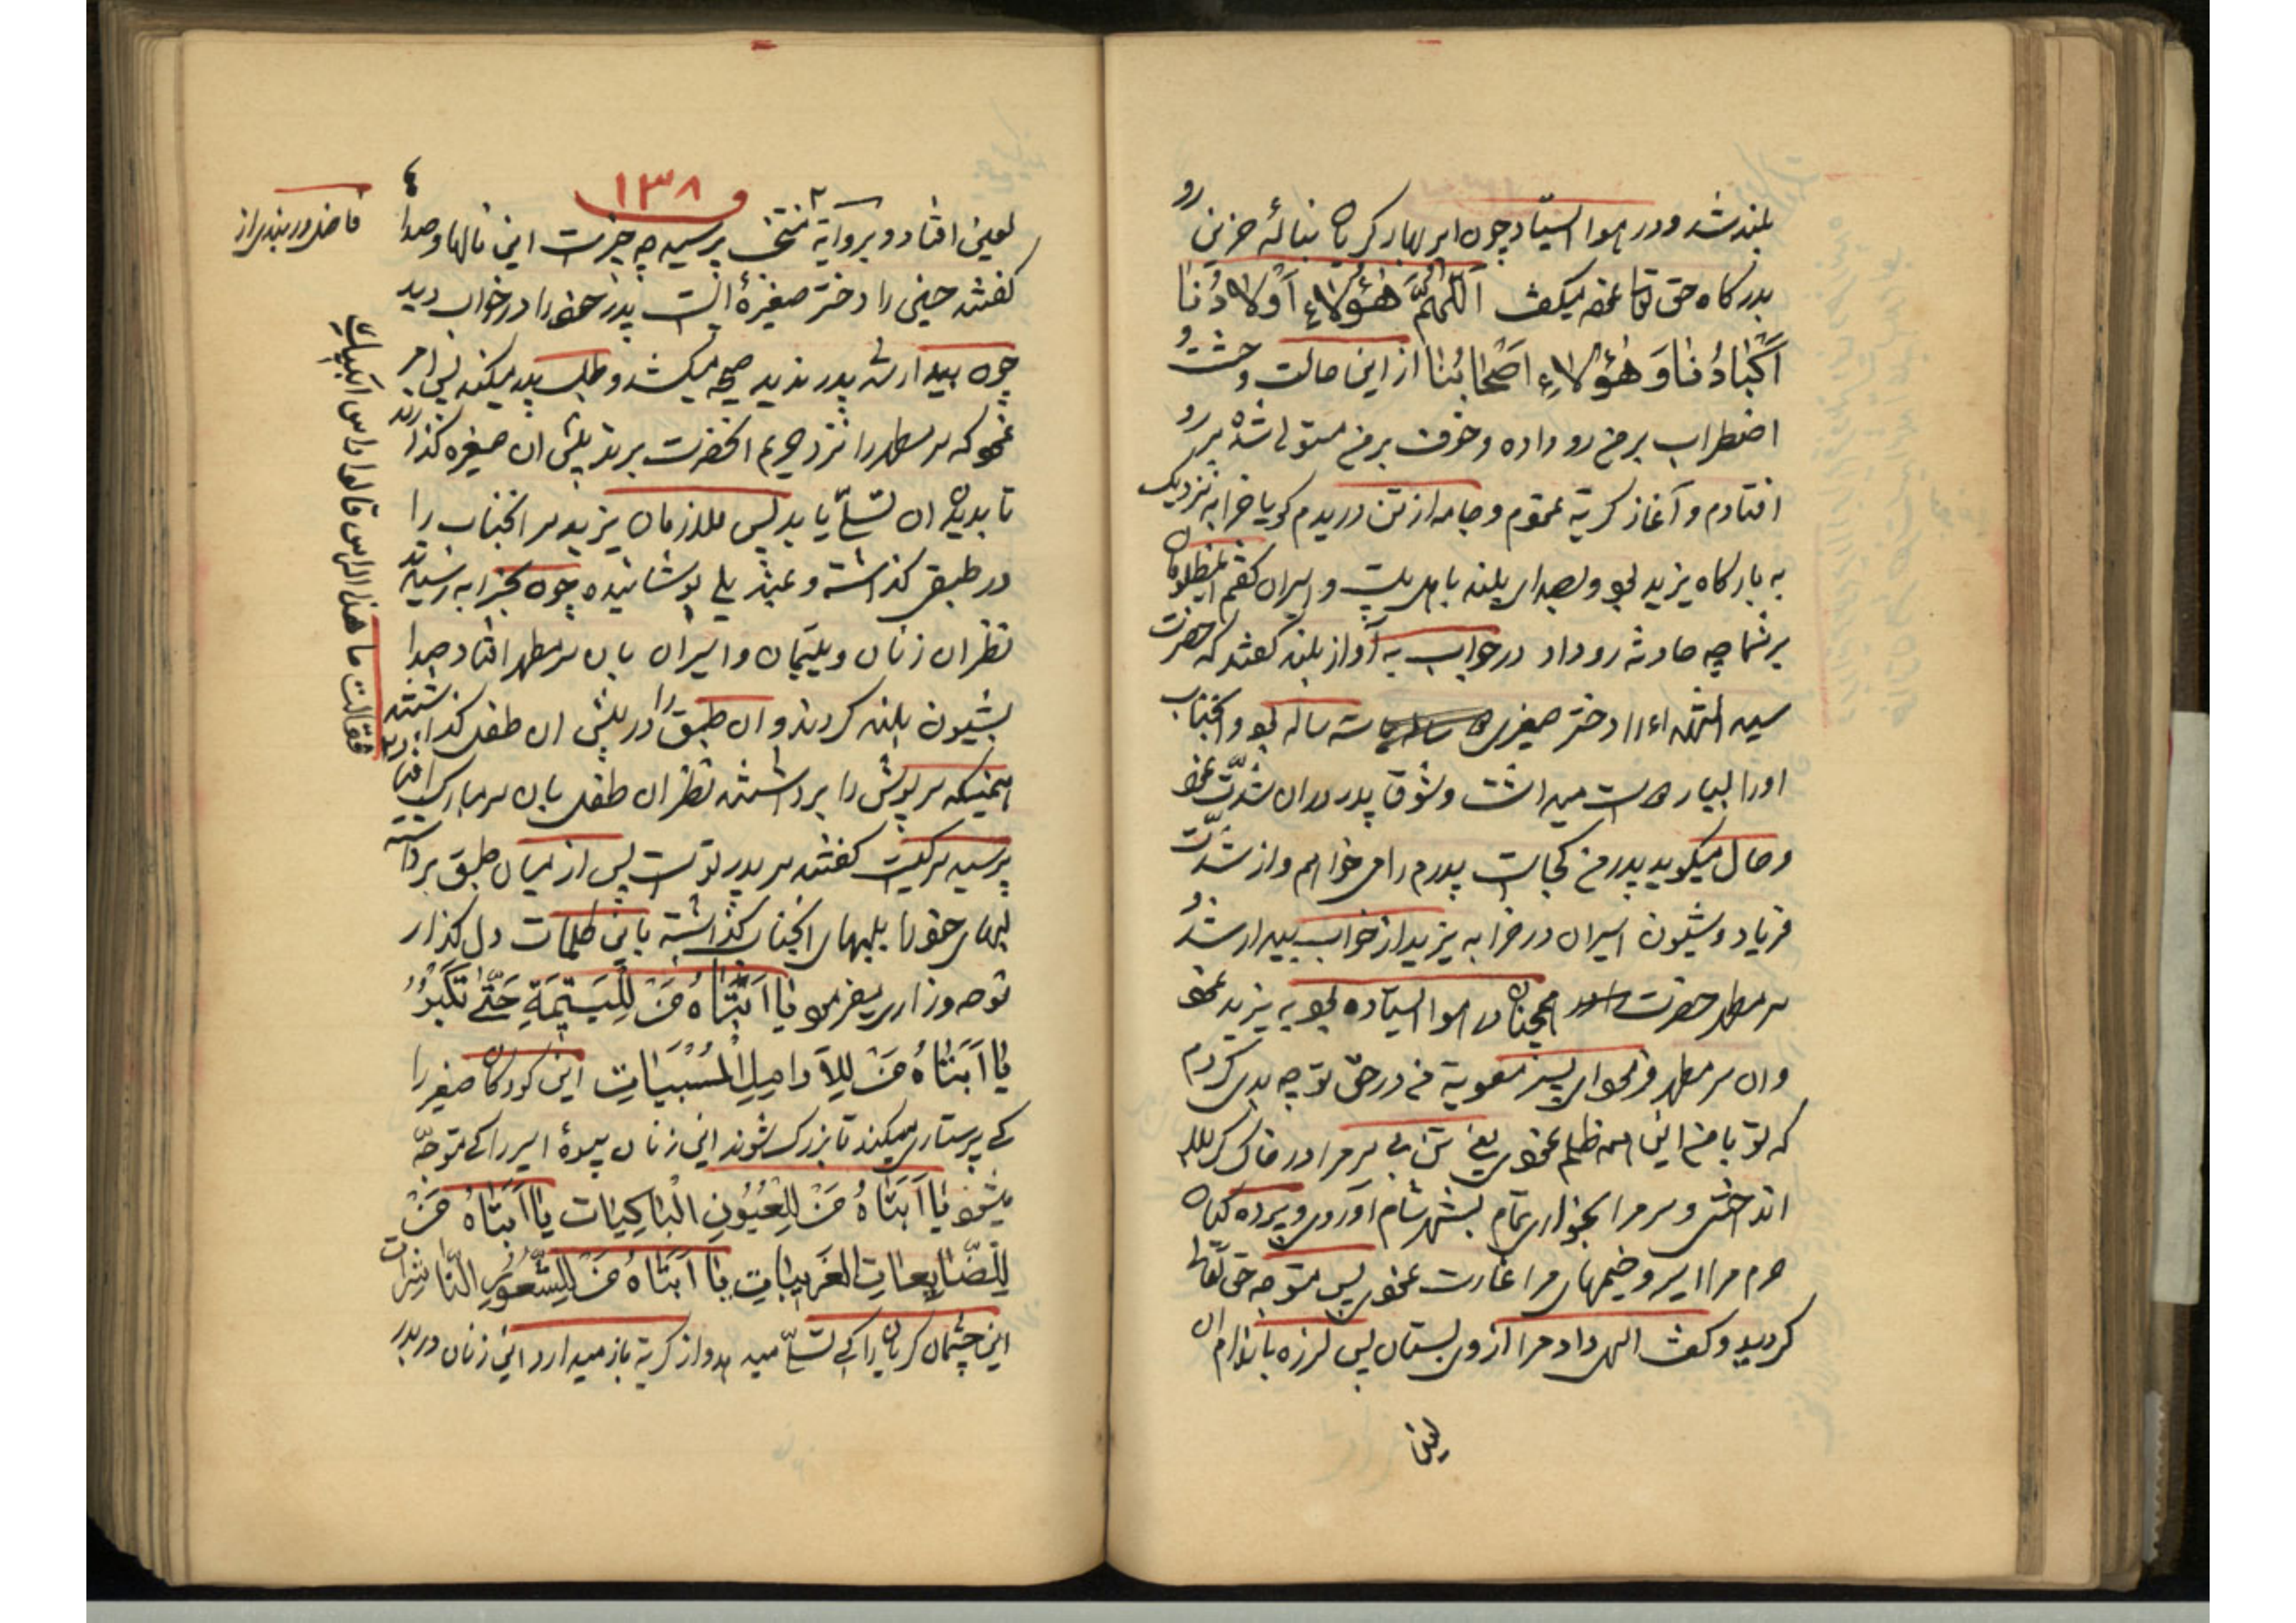 بلند شد و در هوا ایستاد چون ابر بهار گریان بنالهٔ حزین رو
بدرگاه حق تعالی نموده میگفت اَللّٰهُمَّ هٰؤُلاءِ اَوْلادُنا
اَکْبادُنا وَ هٰؤُلاءِ اَصْحابُنا از این حالت وحشت و
اضطراب بر من رو داده و خوف بر من مستولی شده بر رو
افتادم و آغاز گریه نمودم و جامه از تن دریدم گویا خرابه نزدیک
به بارگاه یزید بود و بصدای بلند باهل بیت و اسیران گفتم ای مظلومان
بر شما چه حادثه رو داد در جواب به آواز بلند گفتند که حضرت
سید الشهداء را دختر صغیری سه ساله بود و آنجناب
او را بسیار دوست میداشت و شوق پدر در آن شدّت نموده
و حال میگوید پدر من کجاست پدرم را می خواهم و از شدّت
فریاد و شیون اسیران در خرابه یزید از خواب بیدار شد و
سر مطهر حضرت همچنان در هوا ایستاده بود به یزید نموده
و آن سر مطهر فرمود ای پسر معویه من در حق تو چه بدی کردم
که تو با من این همه ظلم نمودی یعنی تن بی سر مرا در خاک کربلا
انداختی و سر مرا بخواری تمام بشهر شام آوردی و پرده کیان
حرم مرا اسیر و خیمهای مرا غارت نمودی پس متوجه حق تعالی
گردید و گفت الهی داد مرا از وی بستان پس لرزه باندام آن
لعین
۱۳۸
لعین افتاد و بروایة منتخب پرسید چه چیزست این نالها و صدا
گفتند حسین را دختر صغیرهٔ است پدر خود را در خواب دید
چون بیدار شد پدر ندید صیحه میکشد و طلب پدر میکند پس امر
نمود که سر مطهر را نزد حریم آنحضرت برند پیش آن صغیره گذارند
تا بدیدن آن تسلّی یابد پس ملازمان یزید سر آنجناب را
در طبقی گذاشته و بمندیلی پوشانیده چون بخرابه رسیدند
نظر آن زنان و یتیمان و اسیران بآن سر مطهر افتاد صدا
بشیون بلند کردند و آن طبق را در پیش آن طفل گذاشتند
همینکه سرپوش را برداشتند نظر آن طفل بآن سر مبارک افتاد
پرسید سر کیست گفتند سر پدر تو است پس از میان طبق برداشته
لبهای خود را بلبهای آنجناب گذاشته باین کلمات دل گداز
نوحه و زاری میفرمود یا اَبَتاهُ مَنْ لِلْیَتیمَةِ حَتّٰی تَکْبُرُ
یا اَبَتاهُ مَنْ لِلْاَرامِلِ الْمُسْبَیاتِ این کودکان صغیر را
که پرستاری میکند تا بزرگ شوند این زنان بیوهٔ اسیر را که متوجّه
میشود یا اَبَتاهُ مَنْ لِلْعُیُونِ الْباکِیاتِ یا اَبَتاهُ مَنْ
لِلضّایِعاتِ الْغَریباتِ یا اَبَتاهُ مَنْ لِلشُّعُورِ النّاشِراتِ
این چشمان گریان را که تسلّی میدهد و از گریه باز میدارد این زنان دربدر
فاضل دربندی از
فقالت ما هذا الراس قالوا راس ابیک